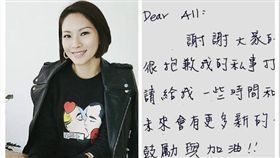 Dear All:
謝謝大家的
很抱歉我的私事打
請給我一些時間和
未來會有更多新的
鼓勵與加油!!